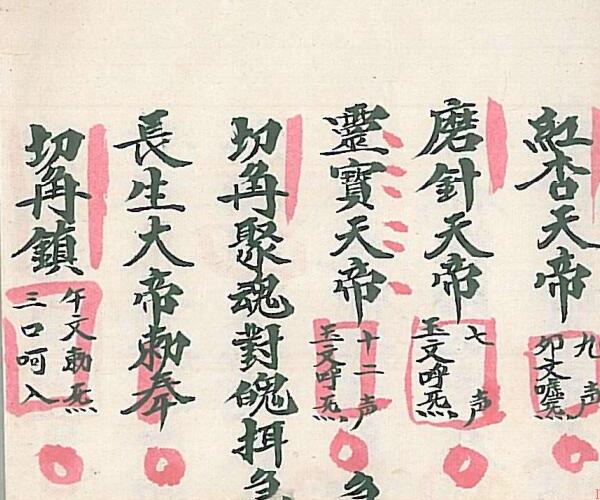 紅杏天帝
九声
卯文噓炁
磨針天帝
七声
玉文呼炁
靈寶天帝
十二声
玉文呼炁
切角聚魂對魄揖
長生大帝勅奉
切角鎮
午文勅炁
三口呵入